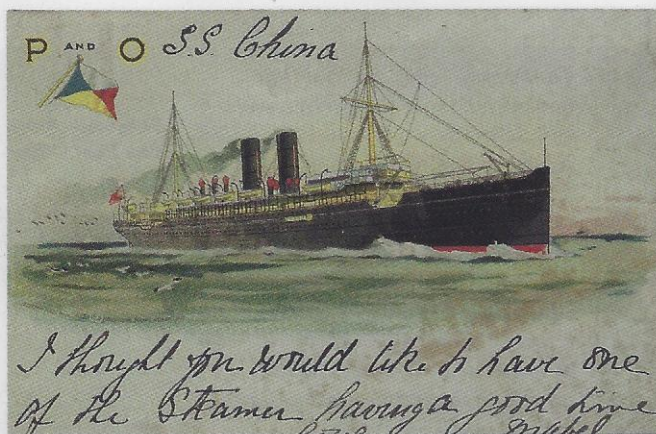 P AND O S.S. China
I thought you would like to have one
of the Steamer having a good time
Mabel